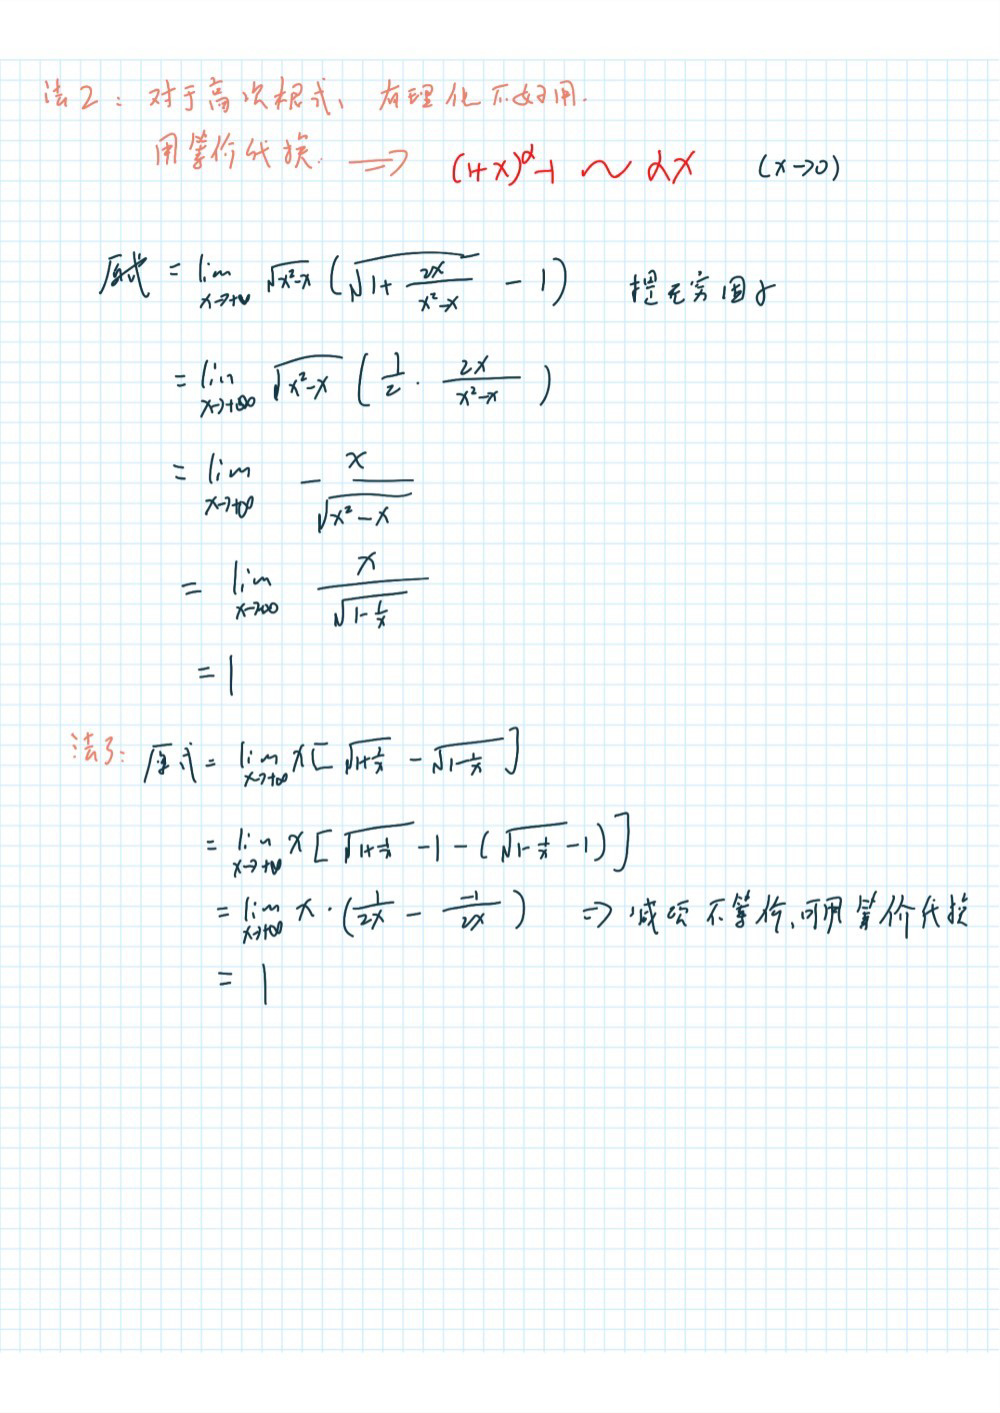 法2：对于高次根式、有理化不好用.
用等价代换. ⟹ (1+x)^α-1 ~ αx (x→0)
原式 = lim x→+∞ √(x²-x) (√(1+ 2x/(x²-x)) - 1) 提无穷因子
= lim x→+∞ √(x²-x) (1/2 · 2x/(x²-x))
= lim x→+∞ - x/√(x²-x)
= lim x→∞ x/√(1-1/x)
= 1
法3: 原式 = lim x→+∞ x[√(1+1/x) - √(1-1/x)]
= lim x→+∞ x[√(1+1/x) -1 - (√(1-1/x) -1)]
= lim x→+∞ x·(1/2x - -1/2x) ⇒ 减项不等价、可用等价代换
= 1